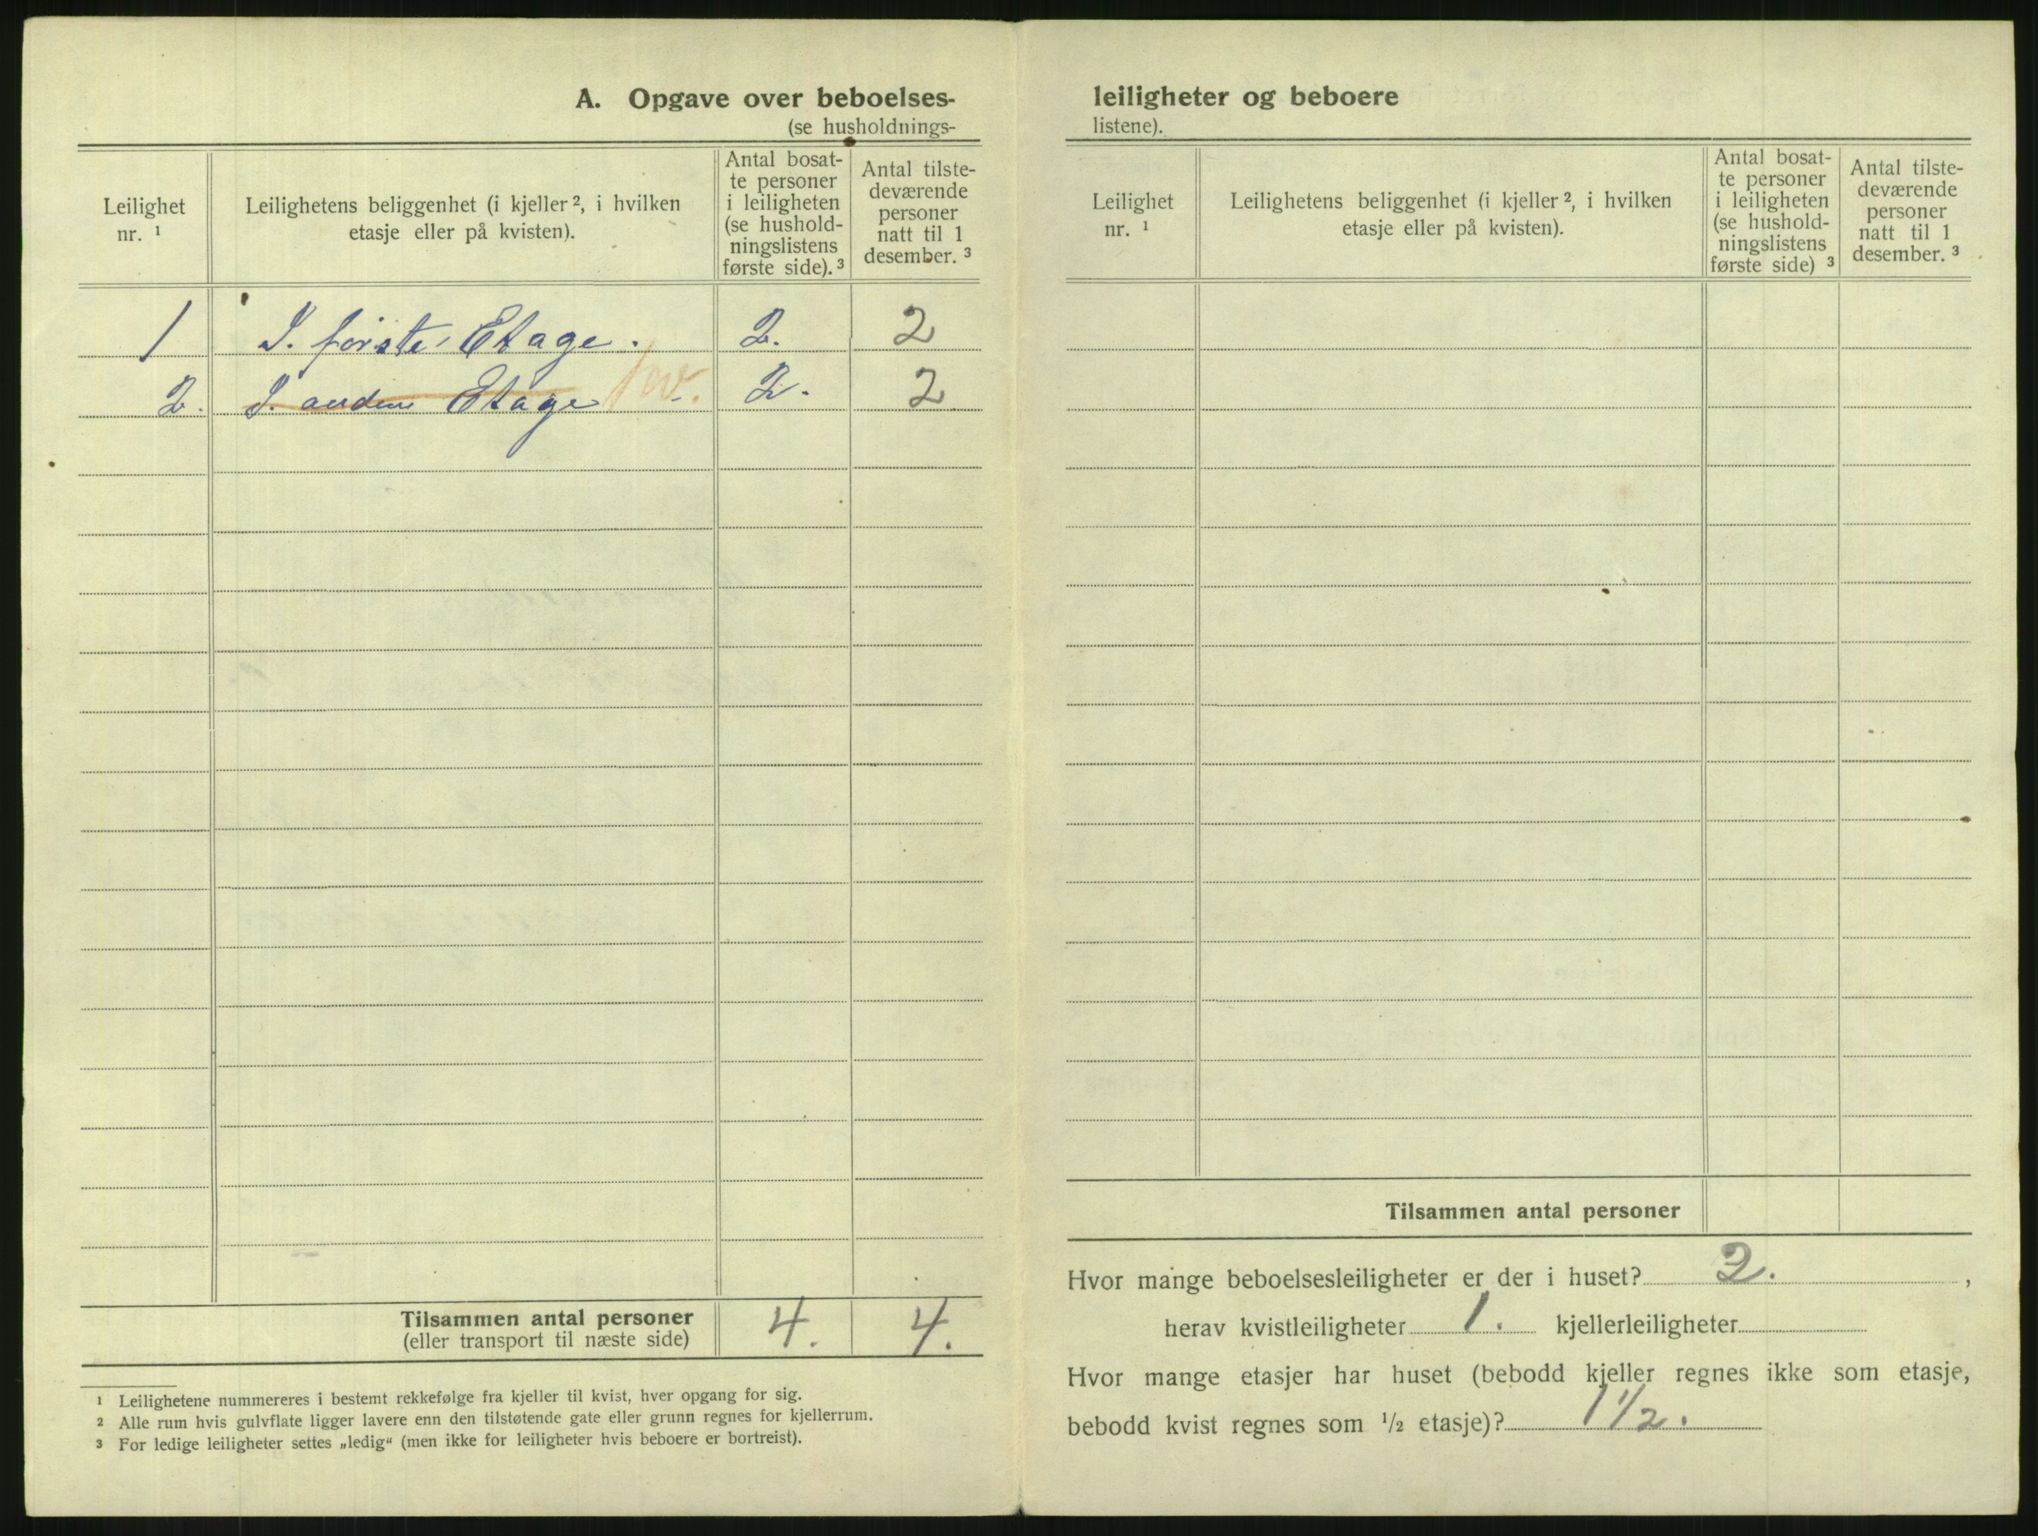 A. Opgave over beboelses-
(se husholdnings-
Leilighet nr. ¹
Leilighetens beliggenhet (i kjeller ², i hvilken etasje eller på kvisten).
Antal bosat-
te personer
i leiligheten
(se hushold-
ningslistens
første side). ³
Antal tilste-
deværende
personer
natt til 1
desember. ³
1 I. første Etage. 2. 2
2. I. anden Etage kv. 2. 2
Tilsammen antal personer 4. 4.
(eller transport til næste side)
¹ Leilighetene nummereres i bestemt rekkefølge fra kjeller til kvist, hver opgang for sig.
² Alle rum hvis gulvflate ligger lavere enn den tilstøtende gate eller grunn regnes for kjellerrum.
³ For ledige leiligheter settes „ledig“ (men ikke for leiligheter hvis beboere er bortreist).
leiligheter og beboere
listene).
Leilighet nr. ¹
Leilighetens beliggenhet (i kjeller ², i hvilken etasje eller på kvisten).
Antal bosat-
te personer
i leiligheten
(se hushold-
ningslistens
første side) ³
Antal tilste-
deværende
personer
natt til 1
desember. ³
Tilsammen antal personer
Hvor mange beboelsesleiligheter er der i huset? 2. ,
herav kvistleiligheter 1. kjellerleiligheter
Hvor mange etasjer har huset (bebodd kjeller regnes ikke som etasje,
bebodd kvist regnes som ½ etasje)? 1 ½.